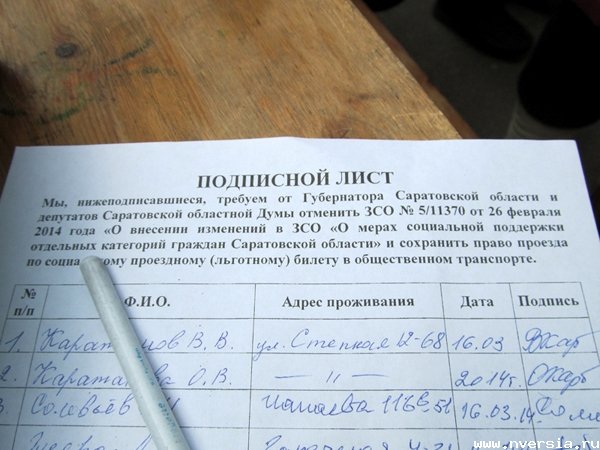 ПОДПИСНОЙ ЛИСТ
Мы, нижеподписавшиеся, требуем от Губернатора Саратовской области и
депутатов Саратовской областной Думы отменить ЗСО № 5/11370 от 26 февраля
2014 года «О внесении изменений в ЗСО «О мерах социальной поддержки
отдельных категорий граждан Саратовской области» и сохранить право проезда
по проездному (льготному) билету в общественном транспорте.
№ п/п Ф.И.О. Адрес проживания Дата Подпись
1. В.В. ул. Степная 12-68 16.03
2. О.В. — 〃 — 2014г.
3. Соловьёв 16.03.14
www.nversia.ru